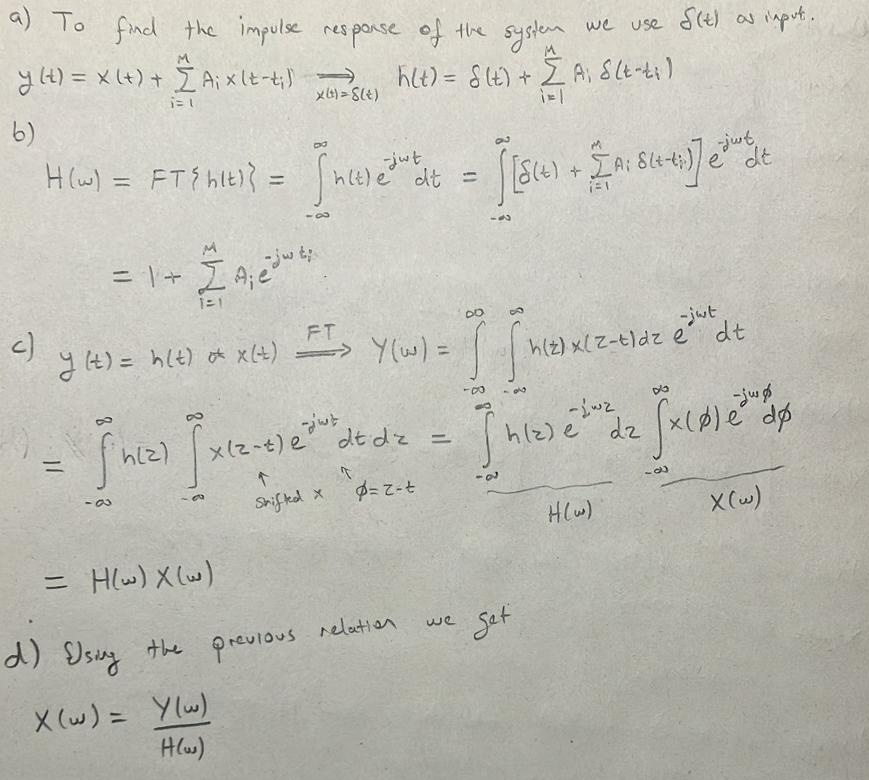 a) To find the impulse response of the system we use δ(t) as input.
y(t) = x(t) + Σ_{i=1}^{M} A_i x(t-t_i) ⟹_{x(t)=δ(t)} h(t) = δ(t) + Σ_{i=1}^{M} A_i δ(t-t_i)
b)
H(ω) = FT{h(t)} = ∫_{-∞}^{∞} h(t) e^{-jωt} dt = ∫_{-∞}^{∞} [δ(t) + Σ_{i=1}^{M} A_i δ(t-t_i)] e^{-jωt} dt
= 1 + Σ_{i=1}^{M} A_i e^{-jωt_i}
c) y(t) = h(t) * x(t) ⟹^{FT} Y(ω) = ∫_{-∞}^{∞} ∫_{-∞}^{∞} h(z) x(z-t) dz e^{-jωt} dt
= ∫_{-∞}^{∞} h(z) ∫_{-∞}^{∞} x(z-t) e^{-jωt} dt dz = ∫_{-∞}^{∞} h(z) e^{-jωz} dz ∫_{-∞}^{∞} x(ϕ) e^{-jωϕ} dϕ
↑ ↑
shifted x ϕ = z-t
H(ω) X(ω)
= H(ω) X(ω)
d) Using the previous relation we get
X(ω) = Y(ω) / H(ω)